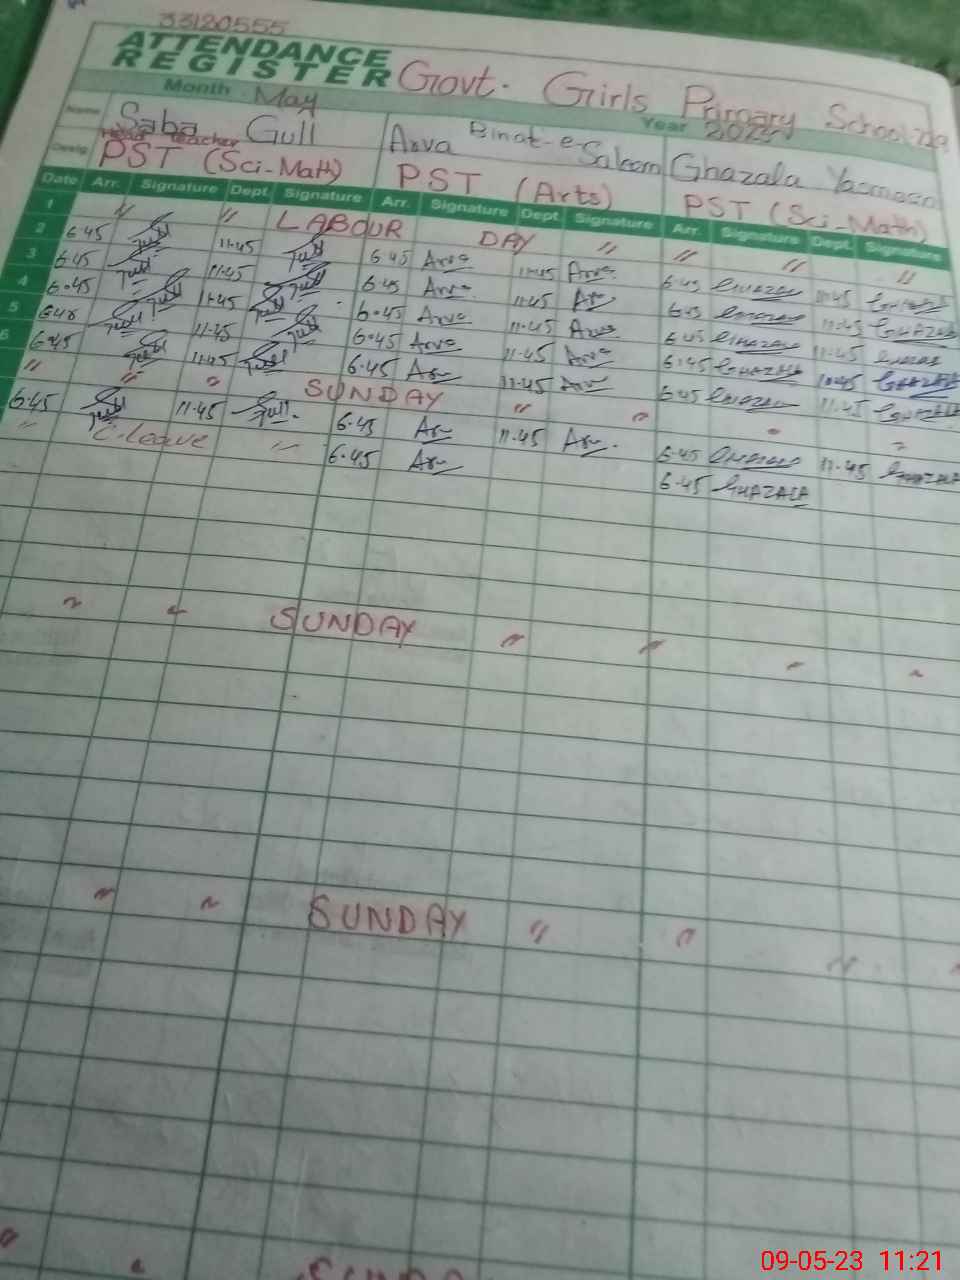 33120555
ATTENDANCE REGISTER Govt. Girls Parpary School 729
Month May Year 2023
Name Saba Gull Arva Binat-e-Saleem Ghazala Yasmeen
Desig Head teacher
PST (Sci-Math) PST (Arts) PST (Sci-Math)
Date Arr. Signature Dept. Signature Arr. Signature Dept. Signature Arr. Signature Dept. Signature
1 " " LABOUR DAY " " " "
2 6.45 11.45 6.45 Arva 11.45 Arva 6.45 GHAZALA 11.45 GHAZALA
3 6.45 11.45 6.45 Arva 11.45 Ar 6.45 GHAZALA 11.45 GHAZALA
4 6.45 11.45 6.45 Arva 11.45 Arva 6.45 GHAZALA 11.45
5 6.45 11.45 6.45 Arva 11.45 Arva 6.45 GHAZALA GHAZALA
6 6.45 11.45 6.45 Ar 11.45 Ar 6.45 GHAZALA 11.45 GHAZALA
" " " SUNDAY " " " "
6.45 11.45 6.45 Ar 11.45 Ar 6.45 GHAZALA 11.45 GHAZALA
" C-Leave " 6.45 Ar 6.45 GHAZALA
" " SUNDAY " " " "
" " SUNDAY " " " "
" " SUNDAY
09-05-23 11:21